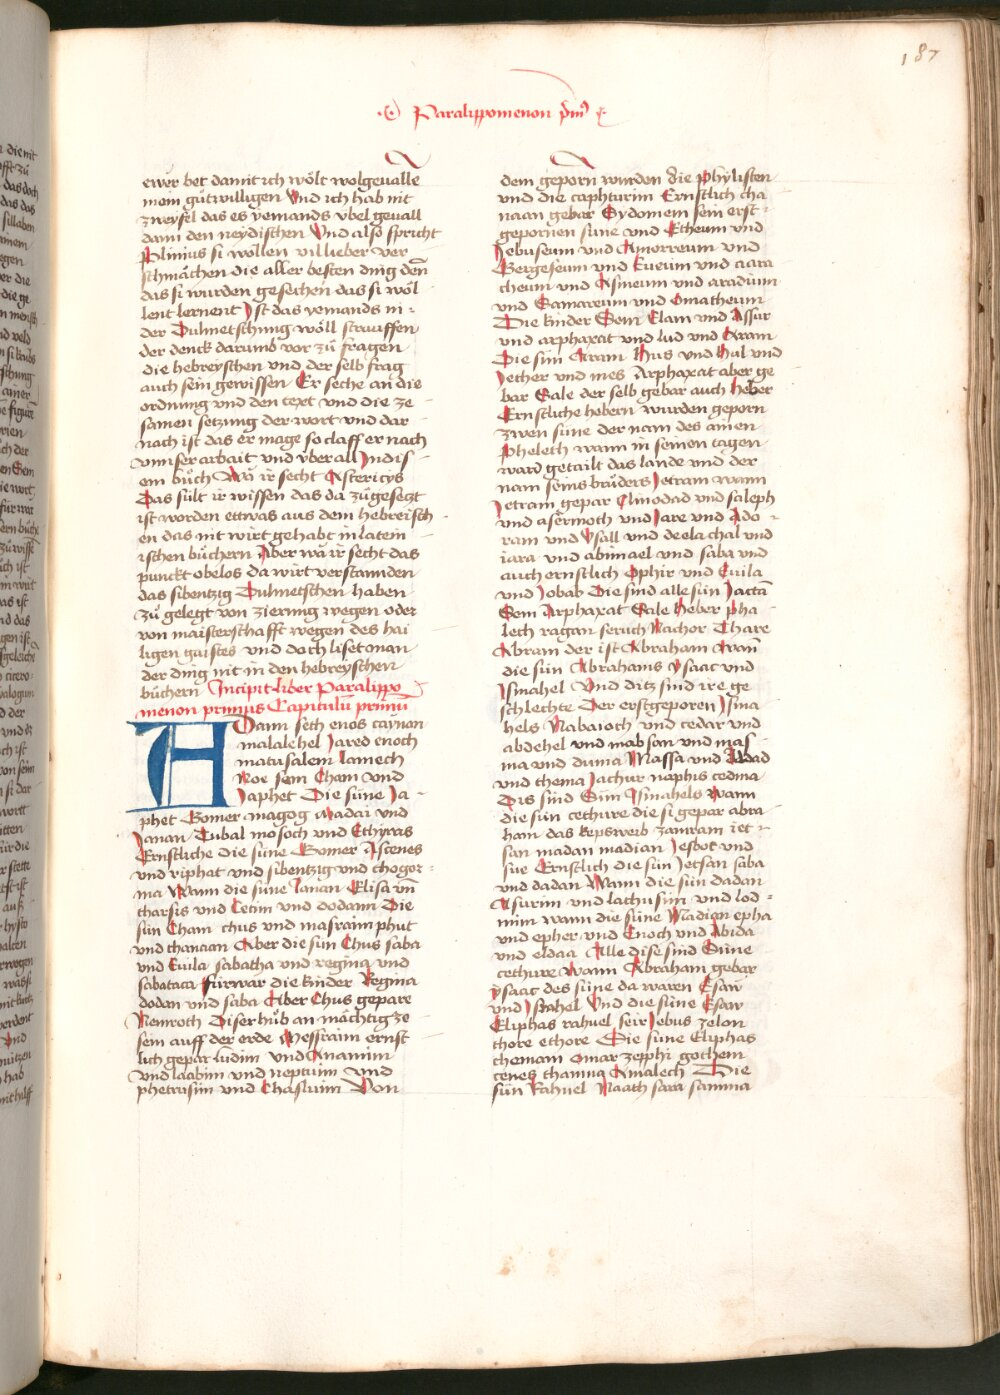 187
Paralippomenon p̄m̄
ewer bet damit ich wölt wolgeualle
mein gůtwilligen Vnd ich hab nit
zweyfel das es yemands vbel geuall
dann den neydischen Vnd also spricht
Plinius si wollen vil lieber ver
schmächen die aller besten ding den̄
das si wurden gesechen das si wöl
lent lernent Ist das yemands in -
der Dulmetschung wöll strauffen
der denck darumb vor zů fragen
die hebreyschen vnd der selb frag
auch sein gewissen Er seche an die
ordnung vnd den text vnd die ze
samen setzung der wort vnd dar
nach ist das er mage so claff er nach
vnnser arbait vnd vber all In dis
em bůch Wa ir secht Astericys
Das sült ir wissen das da zůgesezt
ist worden ettwas aus dem hebreisch
en das nit wirt gehabt in latein
ischen bůchern Aber wa ir secht das
punckt obelos da wirt verstannden
das sibentzig Dulmetschen haben
zů gelegt von zierung wegen oder
von maisterschafft wegen des hai
ligen gaistes vnd doch liset man
der ding nit in den hebreyschen
bůchern Incipit liber Paralippo
menon primus Capitulū primū
ADam seth enos caynon
malalehel Jared enoch
matusalem lamech
Noe sem Cham vnd
Japhet Die süne Ja -
phet Gomer magog Madai vnd
Janan Tubal mosoch vnd Ethyras
Ernstliche die süne Gomer Ascenes
vnd riphat vnd sibentzig vnd chogor -
ma Wann die süne Janan Elisa vn̄
tharsis vnd Cetim vnd dodanī Die
sün Cham chus vnd masraim phut
vnd chanaan Aber die sün Chus saba
vnd Euila sabatha vnd regma vnd
sabataca fürwar die kinder Regma
dodan vnd saba Aber Chus gepare
Nemroth Diser hůb an mächtig ze
sein auff der erde Messraim ernst
lich gepar ludim vnd Anamim
vnd laabim vnd neptum vnd
phetrusim vnd Chasluim Von
dem geporn wurden die Phylisten
vnd die capthurim Ernstlich cha
naan gebar Sydonem sein erst -
gepornen süne vnd Etheum vnd
Jebuseum vnd Amorreum vnd
Gergeseum vnd Eueum vnd aara
cheum vnd Asineum vnd aradium
vnd Samareum vnd Ematheum
Die kinder Sem Elam vnd Assur
vnd arphaxat vnd lud vnd Aram
Die sün Aram Hus vnd Hul vnd
Jether vnd mes Arphaxat aber ge
bar Sale der selb gebar auch Heber
Ernstliche hebern wurden geporn
zwen süne der nam des ainen
Phelech wann in seinen tagen
ward getailt das lande vnd der
nam seins brůders Jetram wann
Jetram gepar Elmodad vnd saleph
vnd asermoth vnd Jare vnd Ado -
ram vnd Vsall vnd deela chal vnd
iara vnd abimael vnd saba vnd
auch ernstlich Ophir vnd Euila
vnd Jobab Die sind alle sün Jactā
Sem Arphaxat Sale Heber Pha
lech ragan seruch Nachor Thare
Abram der ist Abraham Wan̄
die sün Abrahams Ysaac vnd
Ismahel Vnd ditz sind ire ge
schlechte Der erstgeporen Isma
hels Nabaioch vnd cedar vnd
abdehel vnd mabsan vnd mas
ma vnd duma Massa vnd Adad
vnd thema Jachur naphis cedma
Dis sind Sün Ismahels Wann
die sün cethure die si gepar abra
ham das kepsweib zamram iet -
san madan madian Jesbot vnd
sue Ernstlich die sün Jetsan saba
vnd dadan Wann die sün dadan
Asurim vnd lathusim vnd lod -
mim wann die süne Madian epha
vnd epher vnd Enoch vnd Abida
vnd eldaa Alle dise sind Süne
cethure Wann Abraham gebar
ysaac des süne da waren Esaw
vnd Israhel Vnd die süne Esaw
Eliphas rahuel seir Jebus zelon
chore ethore Die süne Eliphas
theman Omar zepphi gothem
cenes thamna Amalech Die
sün Rahuel Naath sara samma